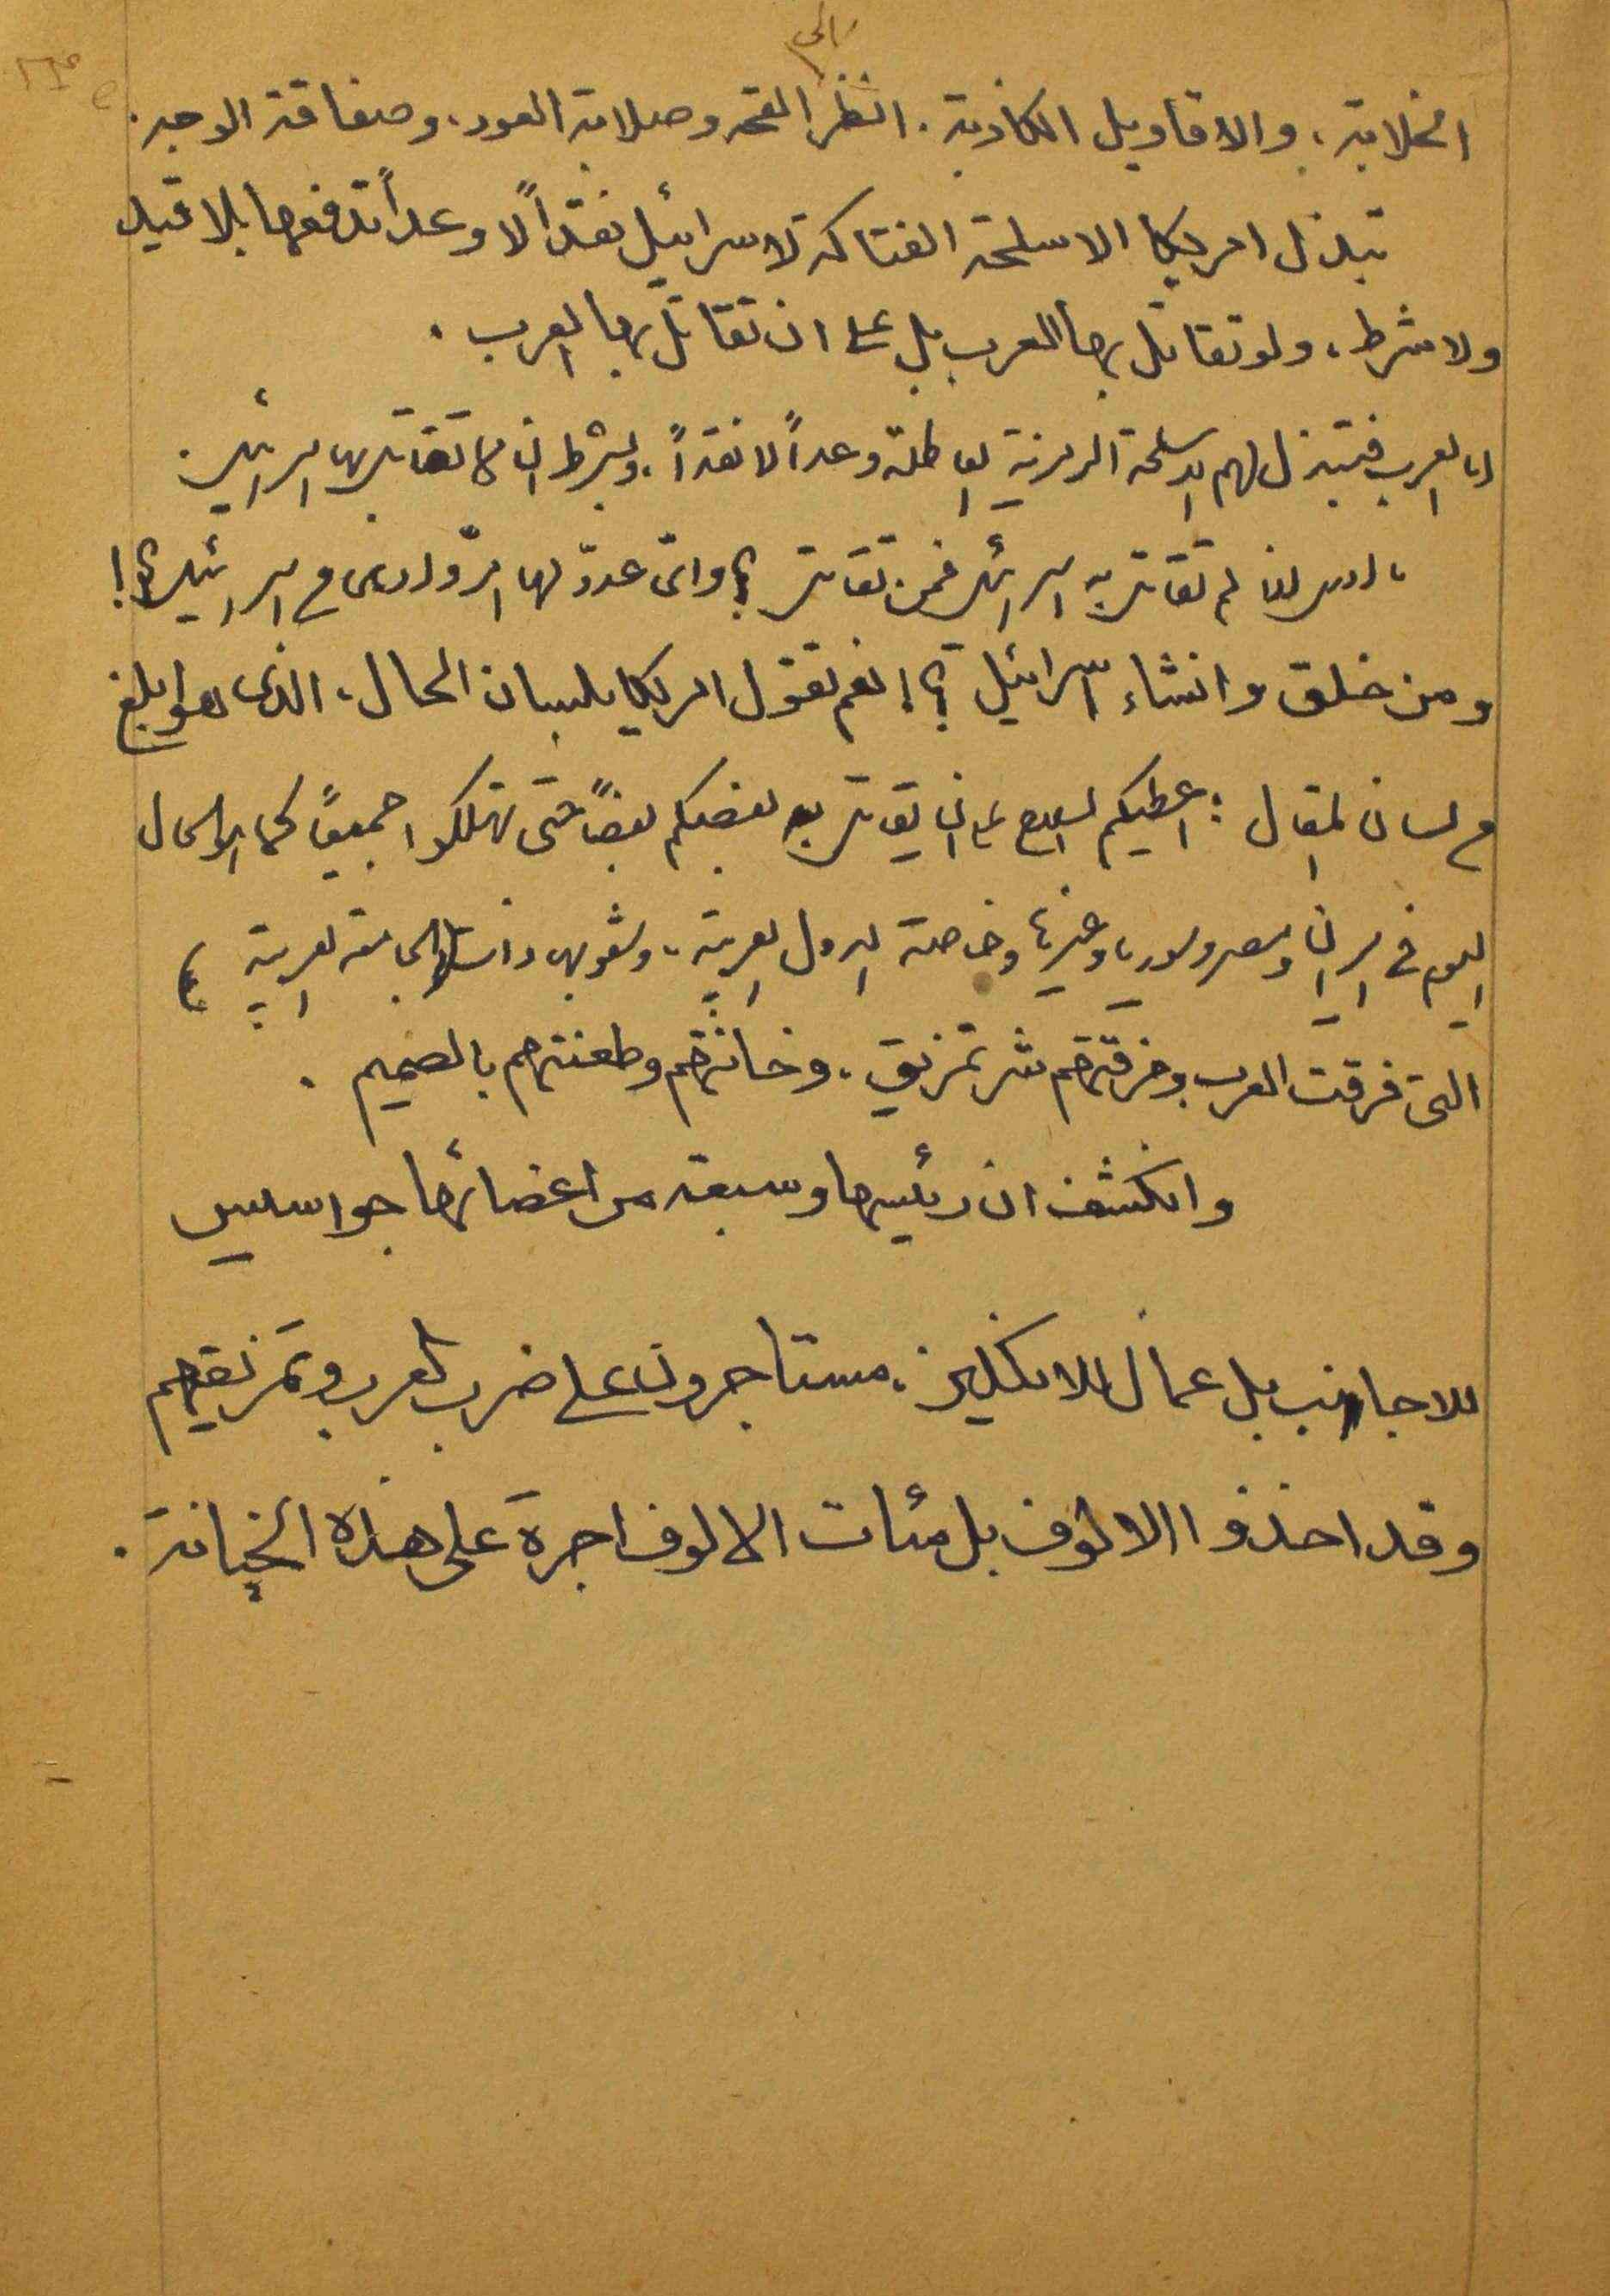 الخلابة، والاقاويل الكاذبة. انظر الى القحة وصلابة العود، وصفاقة الوجه.
تبذل امريكا الاسلحة الفتاكة لاسرائيل نقداً لا وعداً تدفعها بلا قيد
ولا شرط، ولو تقاتل بها العرب بل على ان تقاتل بها العرب.
اما العرب فتبذل لهم الاسلحة الرمزية العاطلة وعداً لا نقداً، وبشرط ان لا تقاتل بها اسرائيل.
لم تقاتل به اسرائيل فمن تقاتل؟ واي عدو لها امرّ وادهى من اسرائيل؟!
ومن خلق وانشاء اسرائيل؟! نعم تقول امريكا بلسان الحال، الذي هو ابلغ
من لسان المقال: اعطيكم السلاح على ان يقاتل به بعضكم بعضاً حتى تهلكوا جميعاً كما هو الحال
اليوم في ايران ومصر وسوريا وغيرها وخاصة الدول العربية، وشعوبها الجامعة العربية)
التي فرقت العرب ومزقتهم شر تمزيق، وخانتهم وطعنتهم بالصميم.
وانكشف ان رئيسها وسبعة من اعضائها جواسيس
للاجانب بل عمال للانكليز، مستاجرون على ضرب العرب وتمزيقهم
وقد اخذوا الالوف بل مئات الالوف اجرة على هذه الخيانة.